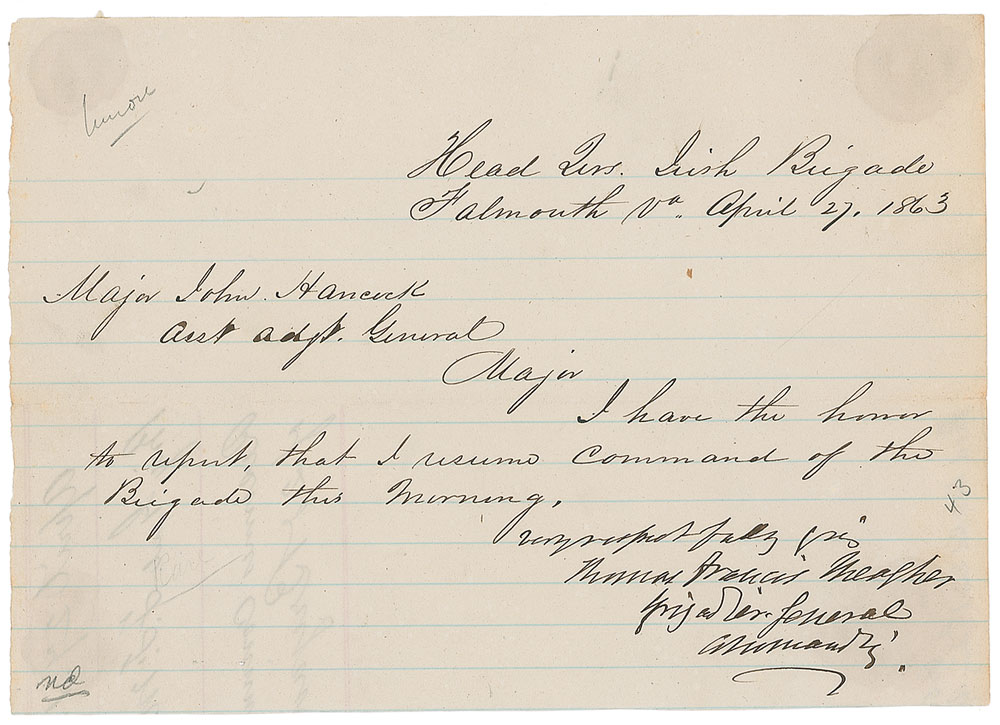 Head Qrs. Irish Brigade
Falmouth Va. April 27, 1863
Major John Hancock
Asst adgt. General
Major
I have the honor
to report, that I resume command of the
Brigade this Morning.
very respectfully yrs
Thomas Francis Meagher
Brigadier. General
Commandg.
43